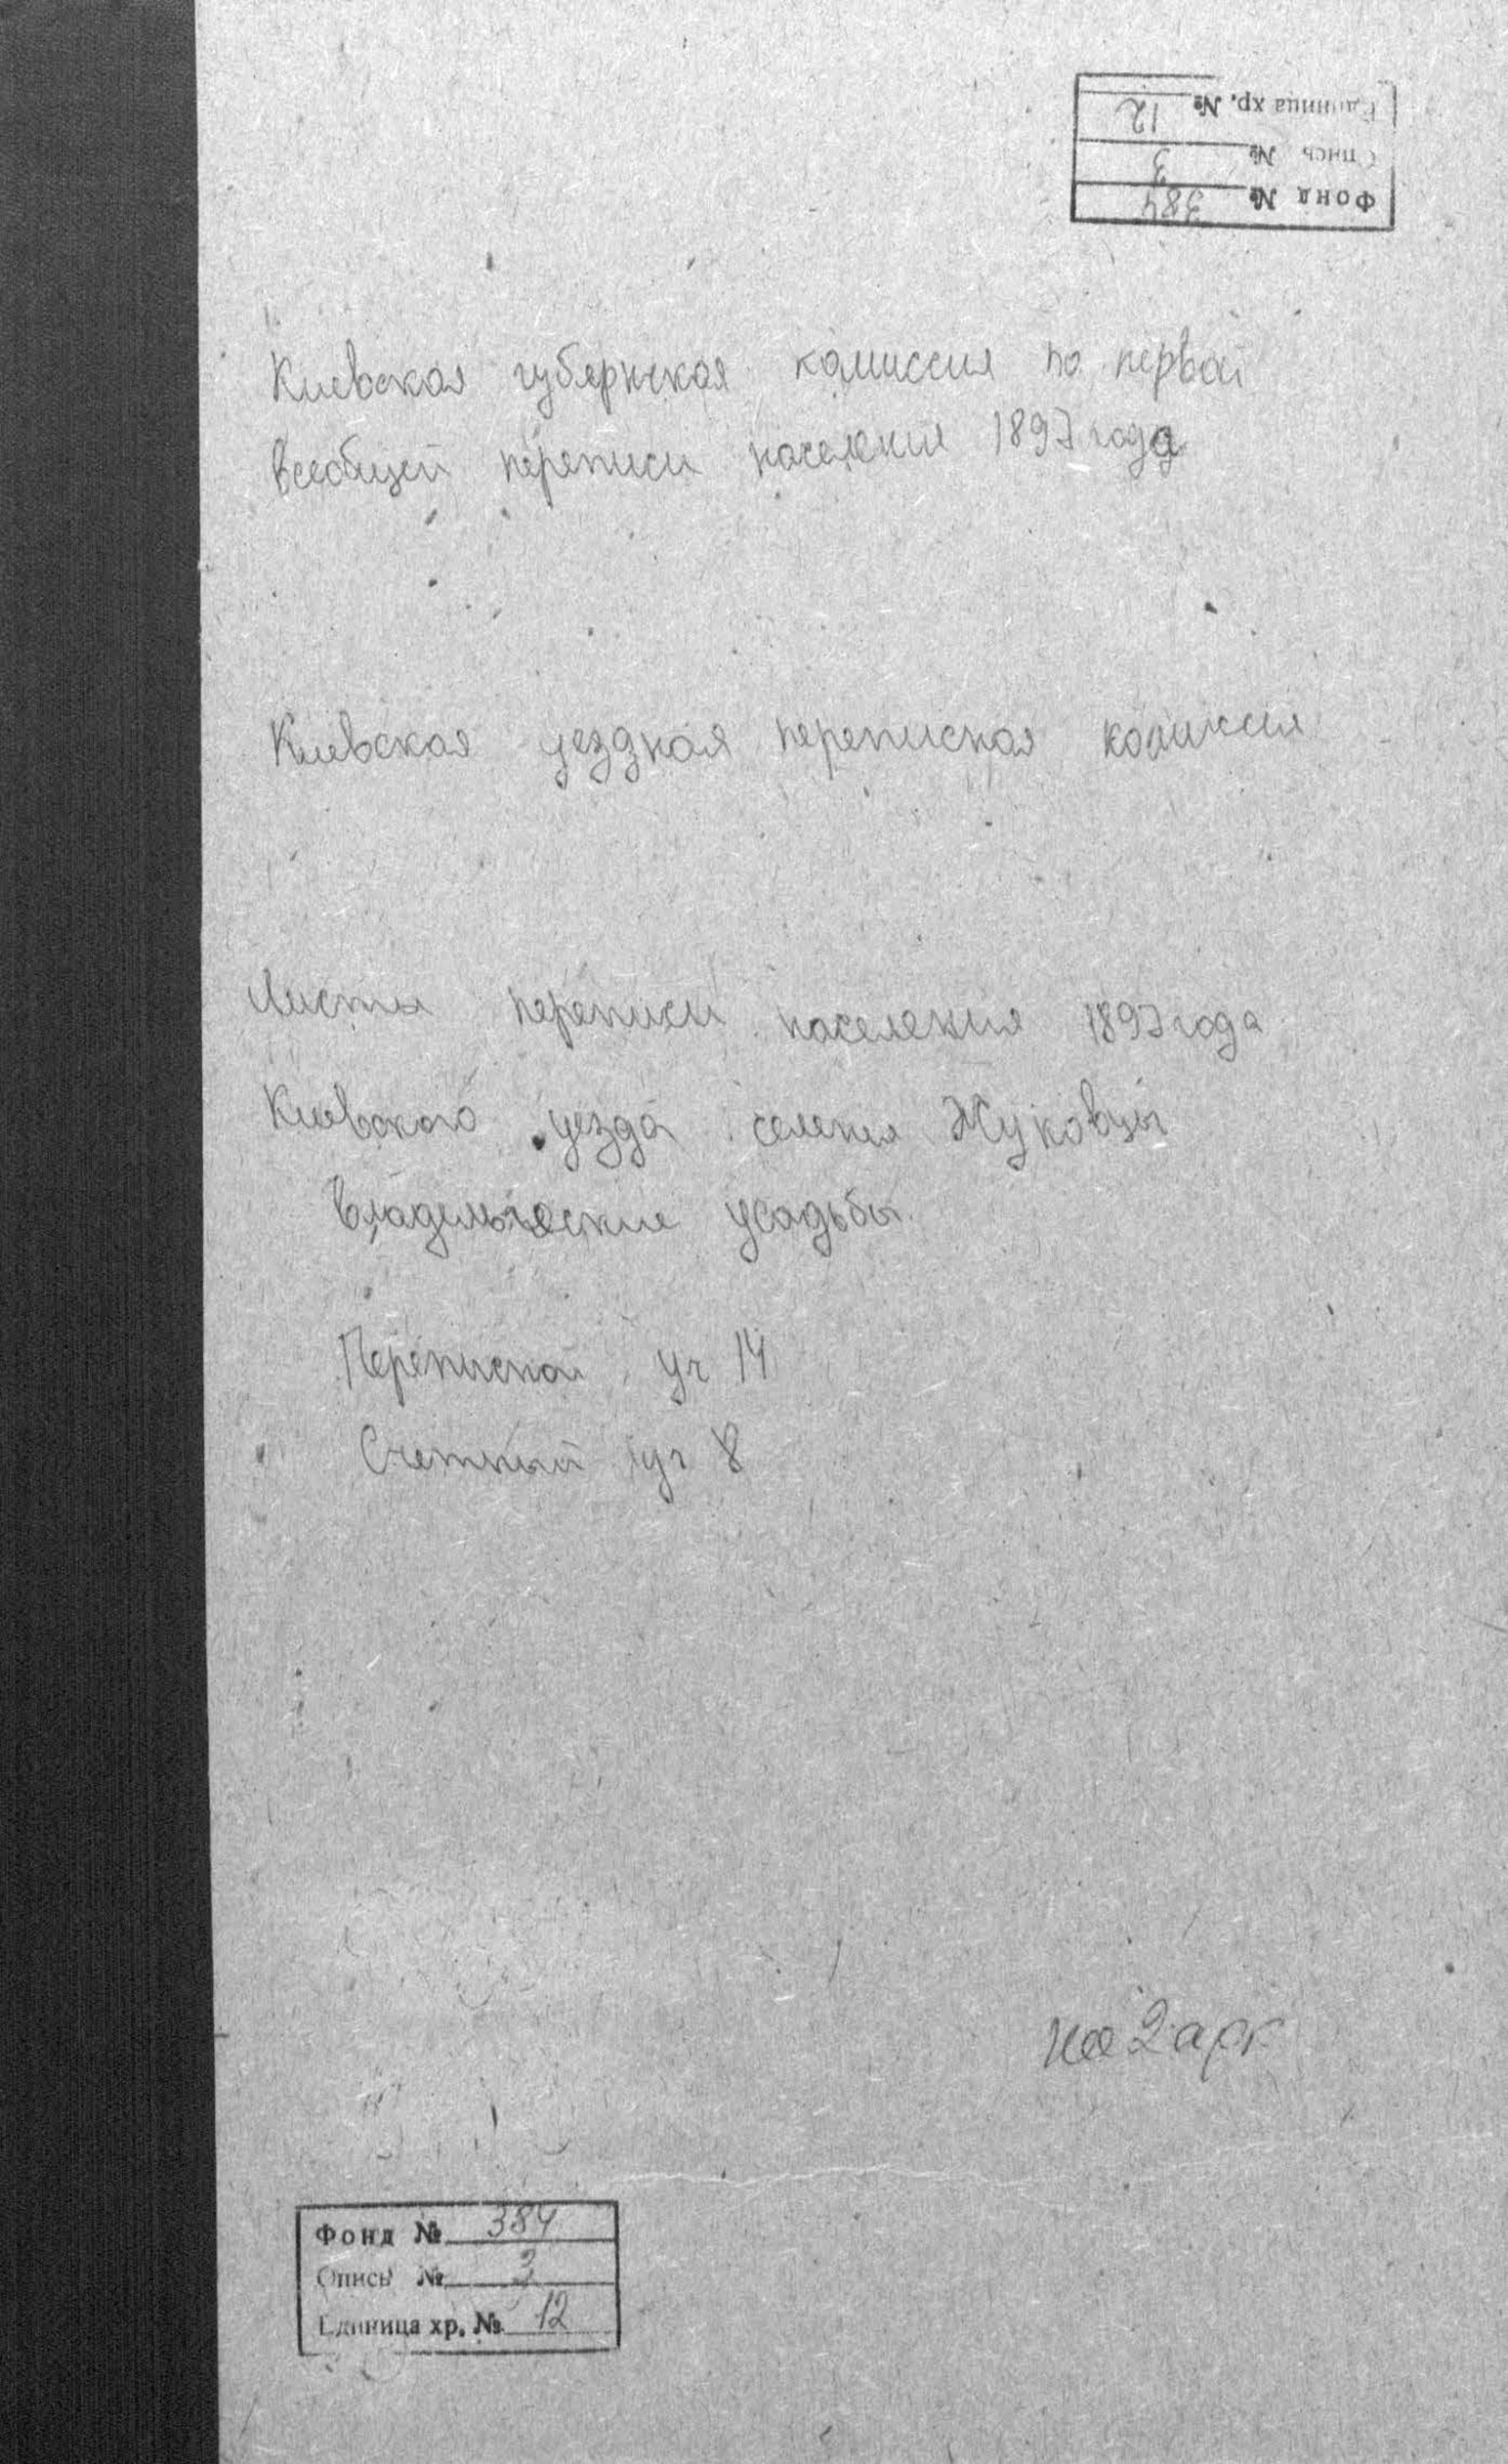 Фонд № 384
Опись № 3
Единица хр. № 12
Киевская губернская комиссия по первой
всеобщей переписи населения 1897 года
Киевская уездная переписная комиссия
Листы переписи населения 1897 года
Киевского уезда селения Жуковцы
Владельческие усадьбы.
Переписной уч 14
Счетный уч 8
на 2 арк
Фонд № 384
Опись № 3
Единица хр. № 12